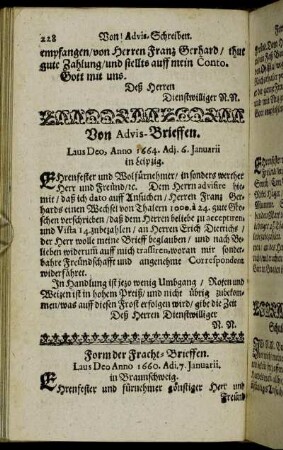 228 Von Advis-Schreiben.
empfangen/von Herren Frantz Gerhard/ thut
gute Zahlung/und stellts auff mein Conto.
Gott mit uns.
Deß Herren
Dienstwilliger N.N.
Von Advis-Brieffen.
Laus Deo, Anno 1664. Adj. 6. Januarii
in Leipzig.
EHrenfester und Wolfürnehmer/ in sonders werther
Herr und Freünd/ꝛc. Dem Herrn advisire hie-
mit/ daß ich dato auff Ansuchen/ Herren Frantz Ger-
hards einen Wechsel von Thalern 1000. à 24. gute Gro-
schen verschrieben/ daß dem Herren beliebe zu acceptiren,
und Vista 14.zubezahlen/ an Herren Erich Dieterichs/
der Herr wolle meine Brieff beglauben/ und nach Be-
lieben widerum auff mich trassiren,woran mir sonder-
bahre Freündschafft und angenehme Correspondentz
widerfähret.
In Handlung ist jezo wenig Umbgang/ Roken und
Weizen ist in hohem Preiß/ und nicht übrig zubekom-
men/was auff diesen Frost erfolgen werd/ gibt die Zeit
Deß Herren Dienstwilliger
N. N.
Form der Fracht-Brieffen.
Laus Deo Anno 1660. Adi.7. Januarii,
in Braunschweig.
EHrenfester und fürnehmer günstiger Herr und
Freünd